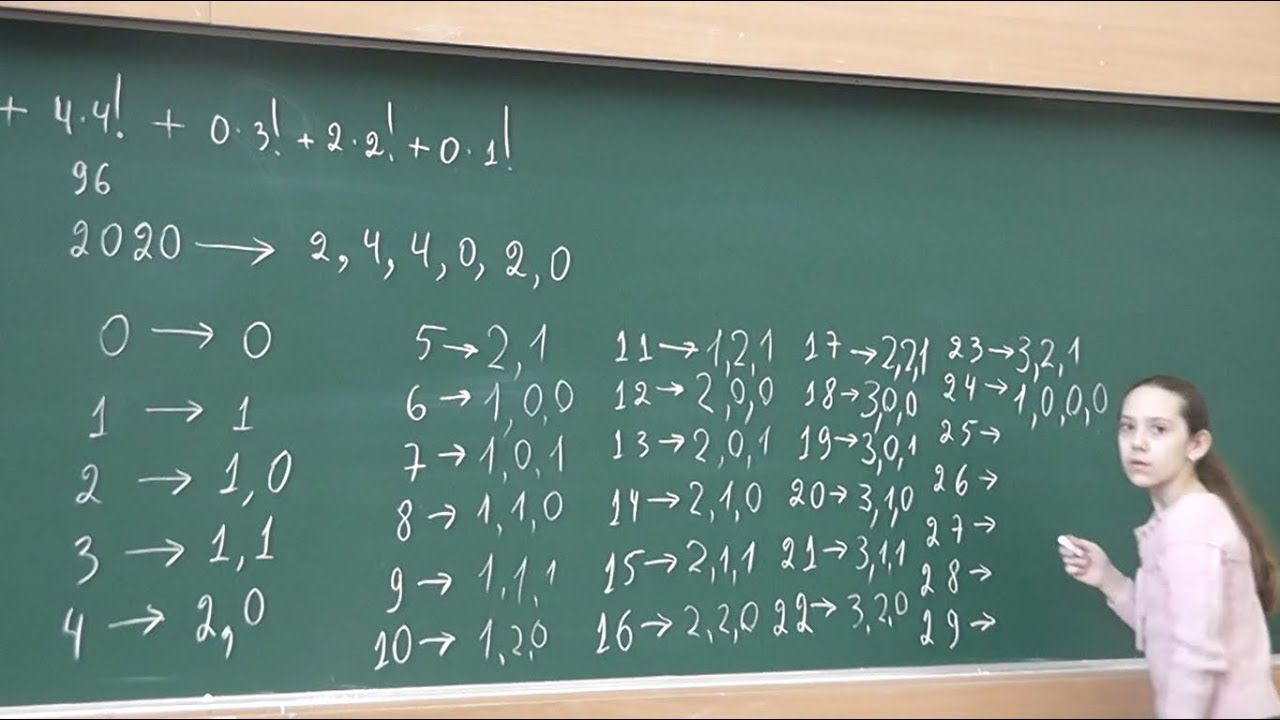 + 4·4! + 0·3! + 2·2! + 0·1!
96
2020 → 2, 4, 4, 0, 2, 0
0 → 0
1 → 1
2 → 1,0
3 → 1,1
4 → 2,0
5 → 2,1
6 → 1,0,0
7 → 1,0,1
8 → 1,1,0
9 → 1,1,1
10 → 1,2,0
11 → 1,2,1
12 → 2,0,0
13 → 2,0,1
14 → 2,1,0
15 → 2,1,1
16 → 2,2,0
17 → 2,2,1
18 → 3,0,0
19 → 3,0,1
20 → 3,1,0
21 → 3,1,1
22 → 3,2,0
23 → 3,2,1
24 → 1,0,0,0
25 →
26 →
27 →
28 →
29 →